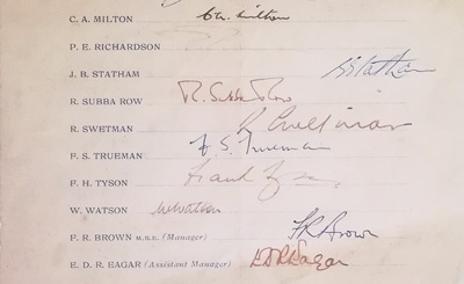 C. A. MILTON C.A. Milton
P. E. RICHARDSON
J. B. STATHAM JBStatham
R. SUBBA ROW R. Subba Row
R. SWETMAN R Swetman
F. S. TRUEMAN F. S. Trueman
F. H. TYSON Frank Tyson
W. WATSON WWatson
F. R. BROWN M.B.E. (Manager) FRBrown
E. D. R. EAGAR (Assistant Manager) EDREagar